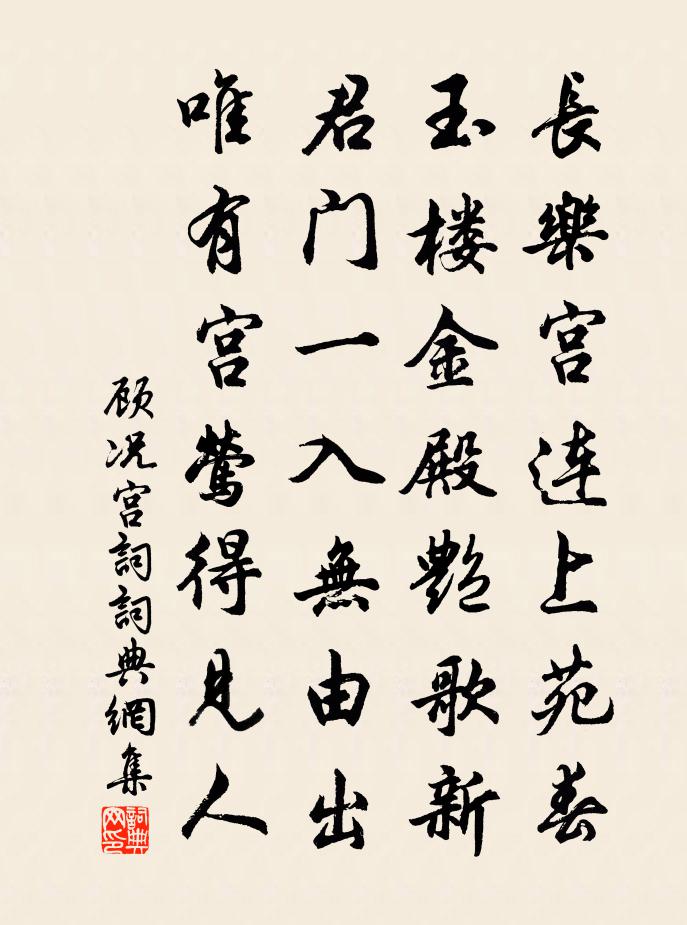 長樂宫連上苑春
玉楼金殿艷歌新
君门一入無由出
唯有宫鶯得見人
顾况宫詞詞典網集
詞典网印